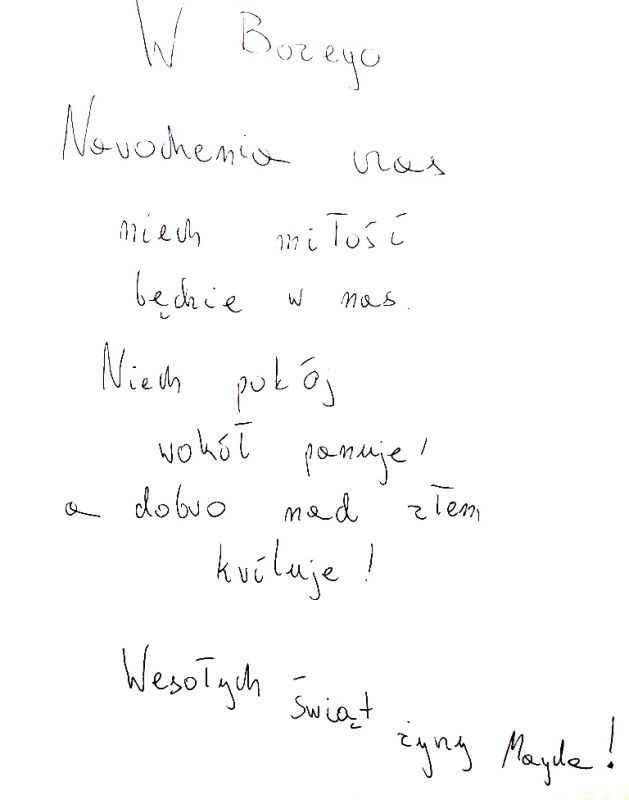 W Bożego
Narodzenia czas
niech miłość
będzie w nas.
Niech pokój
wokół panuje,
a dobro nad złem
króluje!
Wesołych Świąt
życzy Magda!